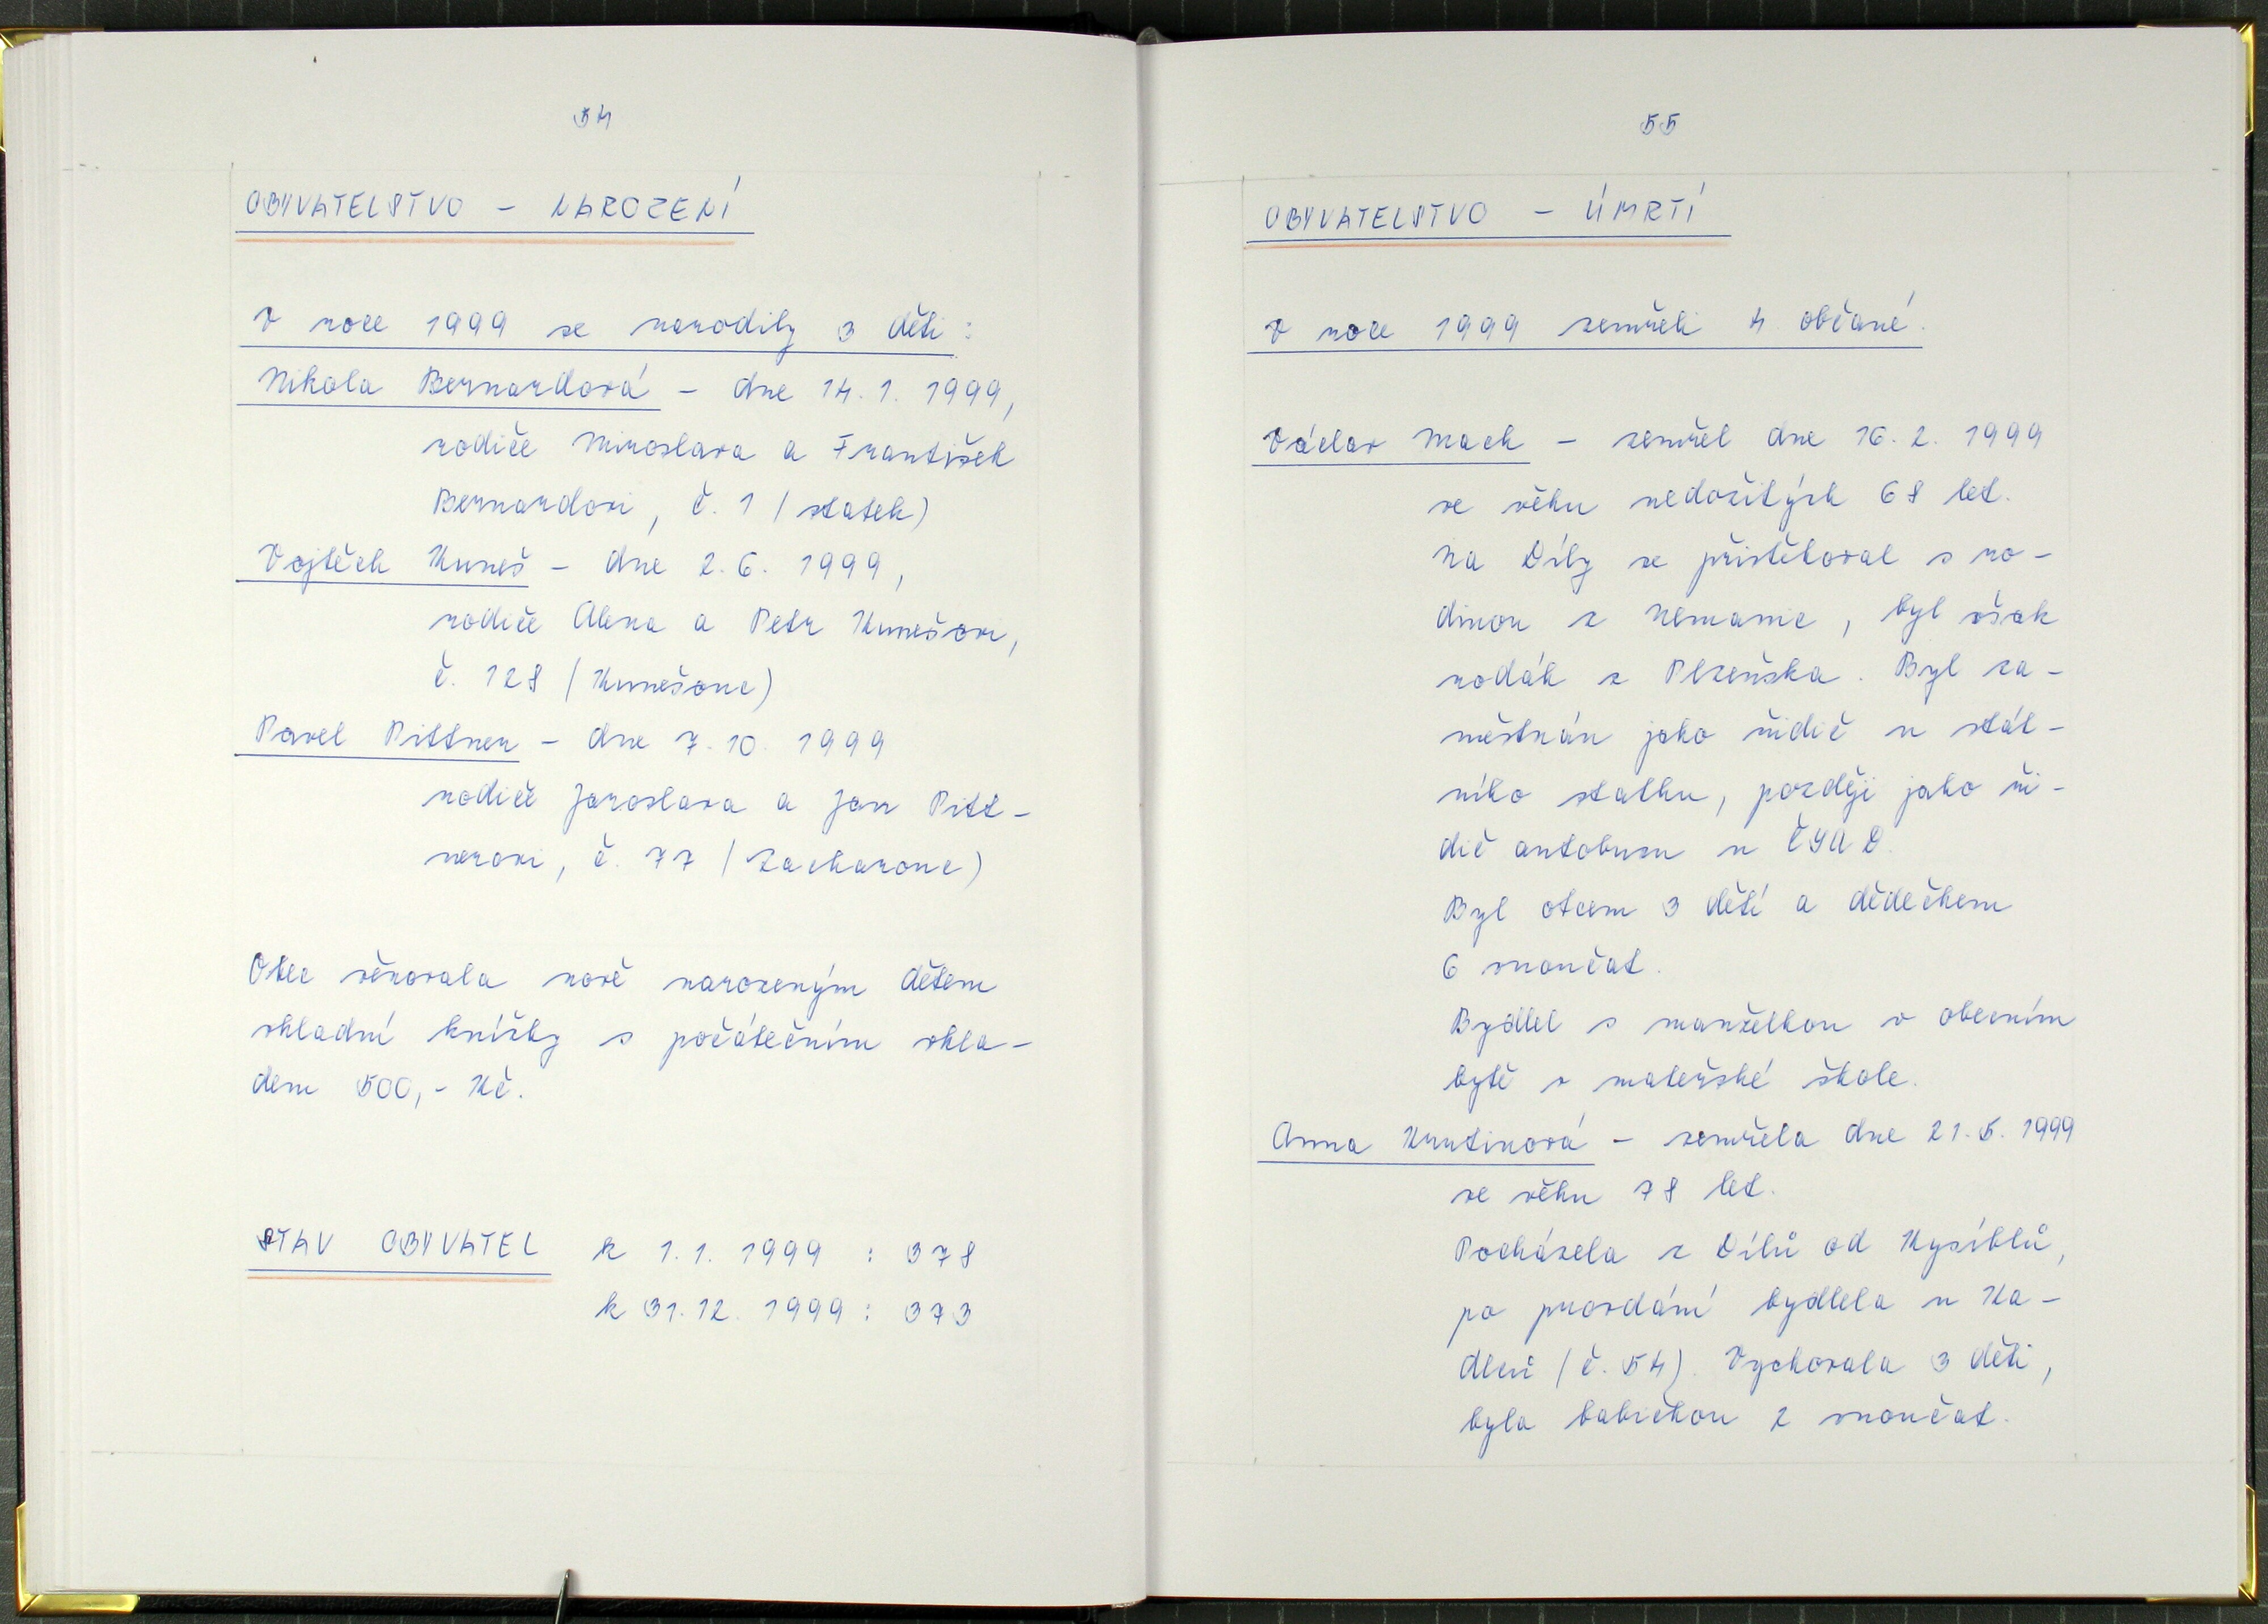 54
OBYVATELSTVO - NAROZENÍ
V roce 1999 se narodily 3 děti:
Nikola Bernardová - dne 14.1. 1999,
rodiče Miroslava a František
Bernardovi, č. 1 (statek)
Vojtěch Kuneš - dne 2.6. 1999,
rodiče Alena a Petr Kunešovi,
č. 128 (Kunešovic)
Pavel Pittner - dne 7.10. 1999
rodiče Jaroslava a Jan Pitt-
nerovi, č. 77 (Zacharovic)
Obec věnovala nově narozeným dětem
vkladní knížky s počátečním vkla-
dem 500,- Kč.
STAV OBYVATEL k 1.1. 1999 : 378
k 31.12. 1999 : 373
55
OBYVATELSTVO - ÚMRTÍ
V roce 1999 zemřeli 4 občané.
Václav Mach - zemřel dne 16.2. 1999
ve věku nedožitých 68 let.
Na Díly se přistěhoval s ro-
dinou z Nemanic, byl však
rodák z Plzeňska. Byl za-
městnán jako řidič u stát-
ního statku, později jako ři-
dič autobusu u ČSAD.
Byl otcem 3 dětí a dědečkem
6 vnoučat.
Bydlel s manželkou v obecním
bytě v mateřské škole.
Anna Krutinová - zemřela dne 21.5. 1999
ve věku 78 let.
Pocházela z Dílů od Kysiblů,
po provdání bydlela u Ka-
dlců (č. 54). Vychovala 3 děti,
byla babičkou 2 vnoučat.